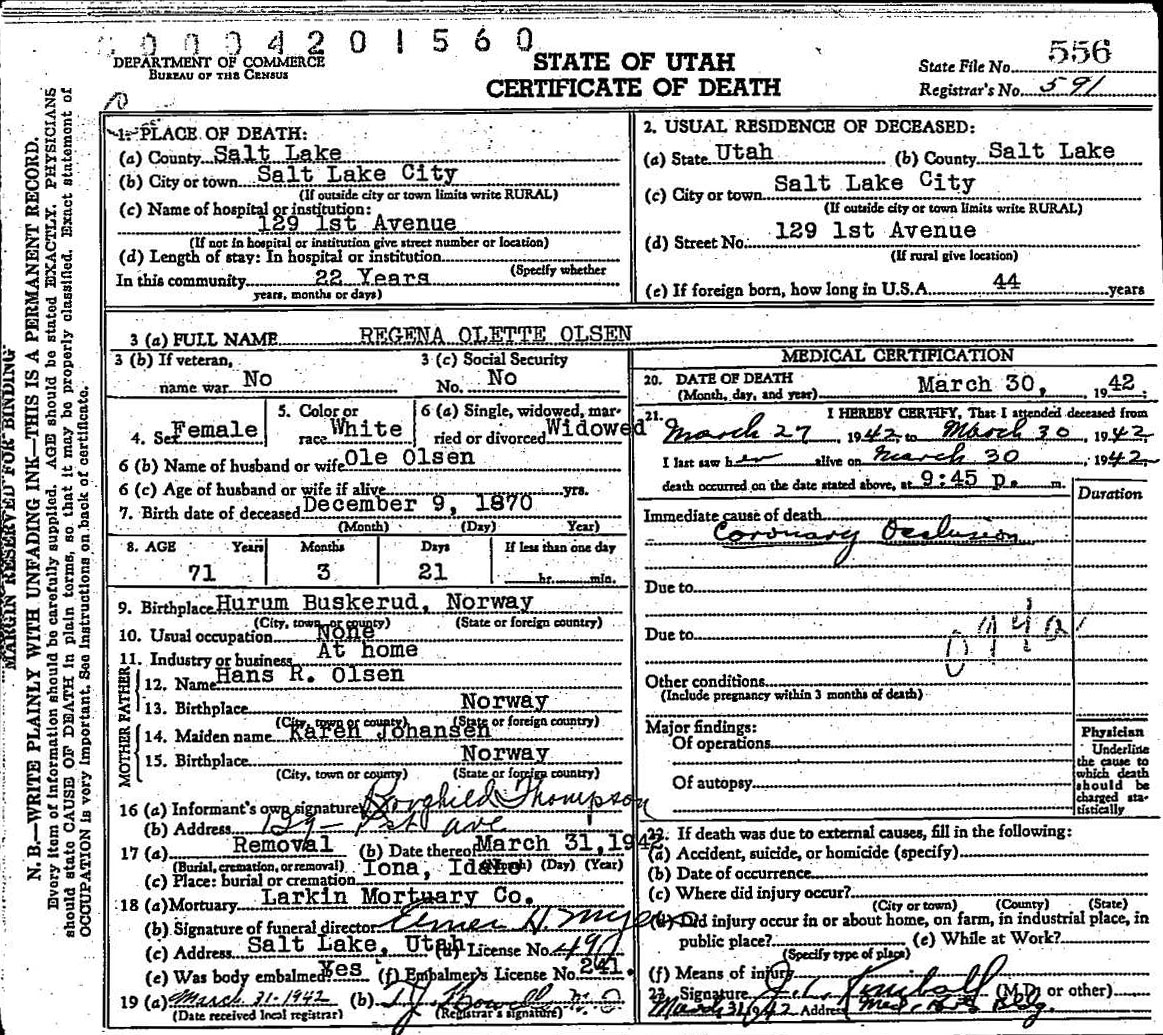 0 0 0 4 2 0 1 5 6 0
DEPARTMENT OF COMMERCE
BUREAU OF THE CENSUS
STATE OF UTAH
CERTIFICATE OF DEATH
State File No. 556
Registrar's No. 591
MARGIN RESERVED FOR BINDING
N. B.—WRITE PLAINLY WITH UNFADING INK—THIS IS A PERMANENT RECORD.
Every item of information should be carefully supplied. AGE should be stated EXACTLY. PHYSICIANS
should state CAUSE OF DEATH in plain terms, so that it may be properly classified. Exact statement of
OCCUPATION is very important. See instructions on back of certificate.
1. PLACE OF DEATH:
(a) County Salt Lake
(b) City or town Salt Lake City
(If outside city or town limits write RURAL)
(c) Name of hospital or institution:
129 1st Avenue
(If not in hospital or institution give street number or location)
(d) Length of stay: In hospital or institution
(Specify whether
In this community 22 Years
years, months or days)
2. USUAL RESIDENCE OF DECEASED:
(a) State Utah (b) County Salt Lake
(c) City or town Salt Lake City
(If outside city or town limits write RURAL)
(d) Street No. 129 1st Avenue
(If rural give location)
(e) If foreign born, how long in U.S.A. 44 years
3 (a) FULL NAME REGENA OLETTE OLSEN
3 (b) If veteran, 3 (c) Social Security
name war No No. No
4. Sex Female 5. Color or race White 6 (a) Single, widowed, married or divorced Widowed
6 (b) Name of husband or wife Ole Olsen
6 (c) Age of husband or wife if alive yrs.
7. Birth date of deceased December 9, 1870
(Month) (Day) Year)
8. AGE Years Months Days If less than one day
71 3 21 hr. min.
9. Birthplace Hurum Buskerud, Norway
(City, town or county) (State or foreign country)
10. Usual occupation None
11. Industry or business At home
FATHER
12. Name Hans R. Olsen
13. Birthplace Norway
(City, town or county) (State or foreign country)
MOTHER
14. Maiden name Karen Johansen
15. Birthplace Norway
(City, town or county) (State or foreign country)
16 (a) Informant's own signature Borghild Thompson
(b) Address 129 - 1st ave
17 (a) Removal (b) Date thereof March 31, 1942
(Burial, cremation, or removal) (Month) (Day) (Year)
(c) Place: burial or cremation Iona, Idaho
18 (a) Mortuary Larkin Mortuary Co.
(b) Signature of funeral director
(c) Address Salt Lake, Utah (d) License No. 490
(e) Was body embalmed Yes (f) Embalmer's License No. 241.
19 (a) March 31-1942 (b)
(Date received local registrar) (Registrar's signature)
MEDICAL CERTIFICATION
20. DATE OF DEATH March 30, 1942
(Month, day, and year)
21. I HEREBY CERTIFY, That I attended deceased from
March 27, 1942 to March 30, 1942
I last saw her alive on March 30, 1942
death occurred on the date stated above, at 9:45 p. m.
Duration
Immediate cause of death
Coronary Occlusion
Due to
Due to 094a
Other conditions
(Include pregnancy within 3 months of death)
Major findings:
Of operations
Of autopsy
Physician
Underline
the cause to
which death
should be
charged sta-
tistically
22. If death was due to external causes, fill in the following:
(a) Accident, suicide, or homicide (specify)
(b) Date of occurrence
(c) Where did injury occur?
(City or town) (County) (State)
(d) Did injury occur in or about home, on farm, in industrial place, in
public place? (e) While at Work?
(Specify type of place)
(f) Means of injury
23. Signature J. L. Kimball (M.D. or other)
March 31, 1942 Address Med. Bldg.